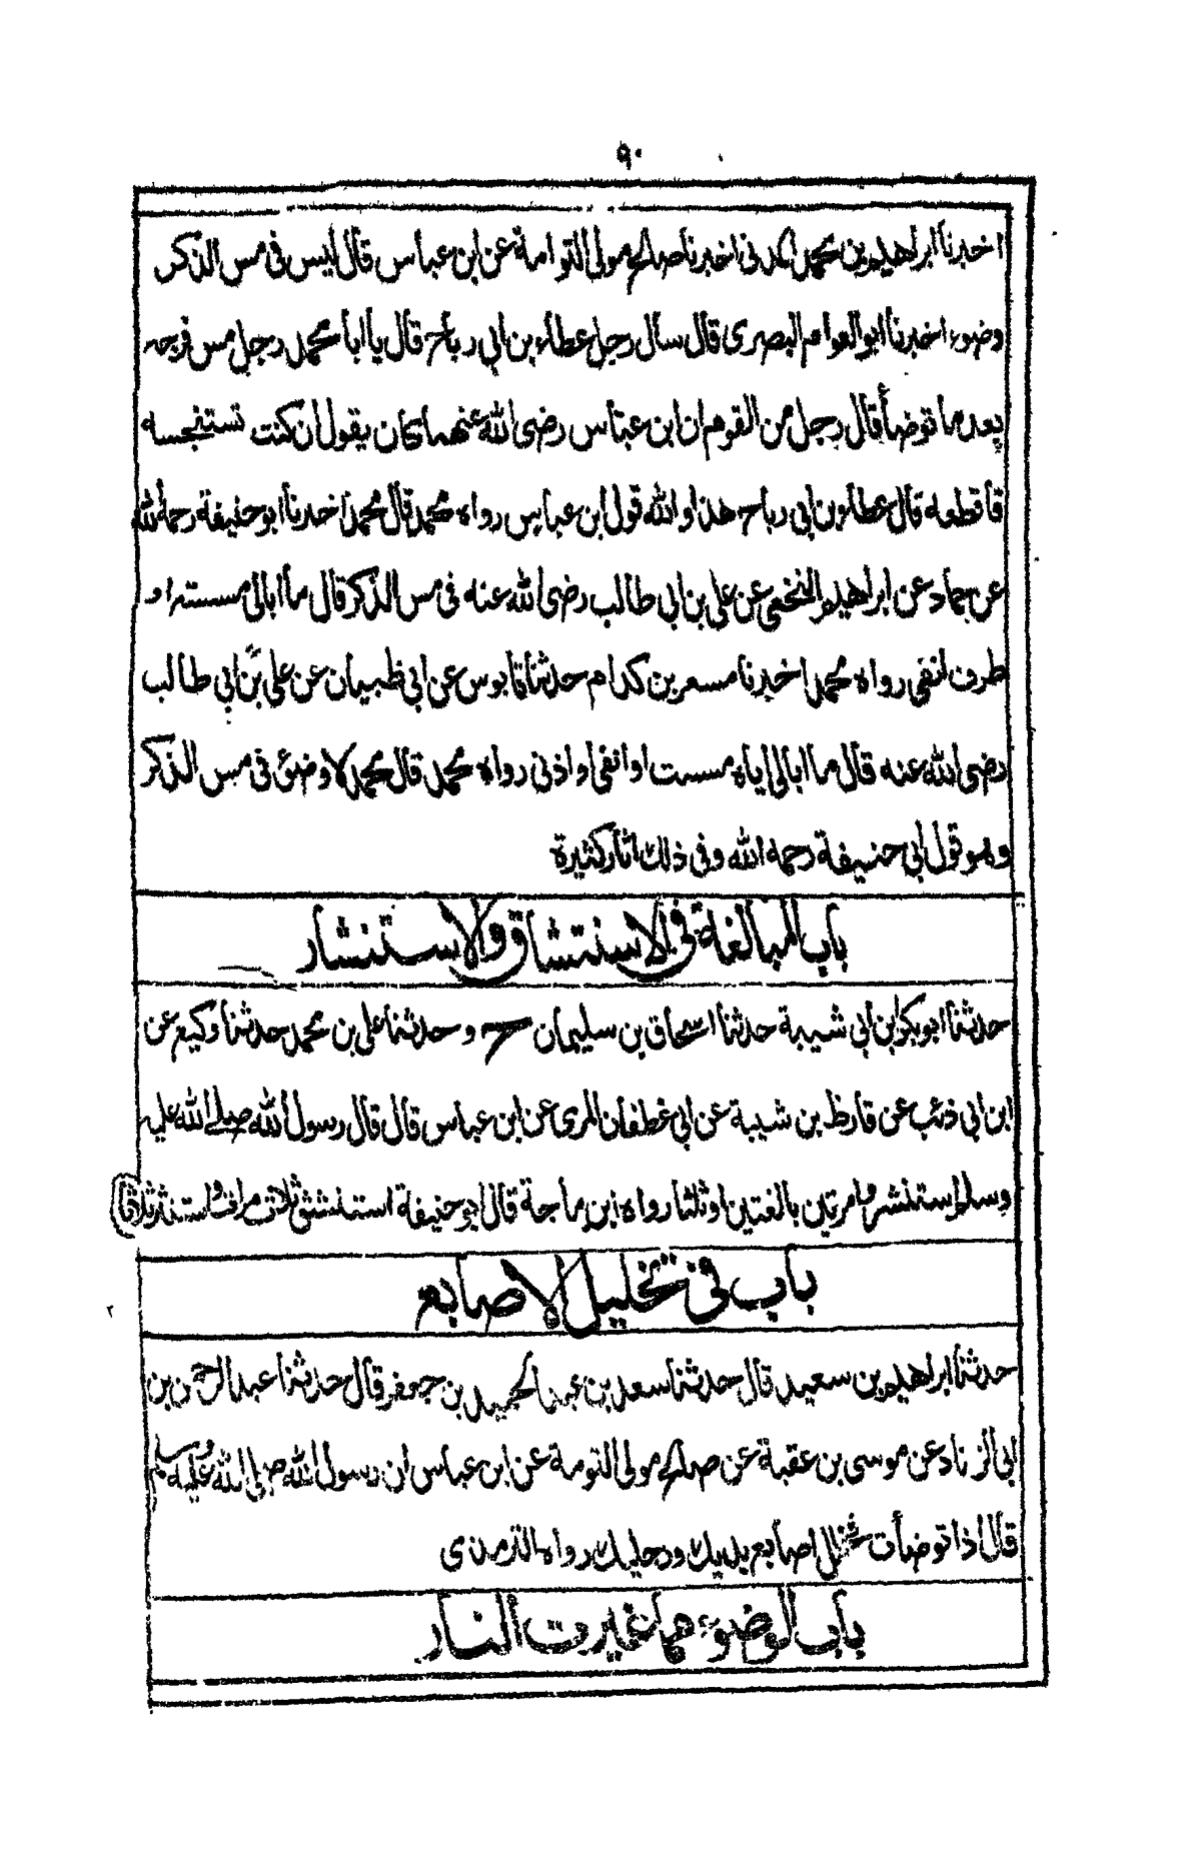 ٩٠
اخبرنا ابراهيم بن محمد المدني اخبرنا صالح مولى التوامة عن ابن عباس قال ليس في مس الذكر
وضوء اخبرنا ابو العوام البصرى قال سأل رجل عطاء بن ابي رباح قال يا ابا محمد رجل مس فرجه
بعد ما توضأ قال رجل من القوم ان ابن عباس رضى الله عنهما كان يقول ان كنت تستنجسه
فاقطعه قال عطاء بن ابي رباح هذا و الله قول ابن عباس رواه محمد قال محمد اخبرنا ابو حنيفة رحمه الله
عن حماد عن ابراهيم النخعي عن علي بن ابي طالب رضى الله عنه في مس الذكر قال ما ابالى مسسته او
طرف انفى رواه محمد اخبرنا مسعر بن كدام حدثنا قابوس عن ابي ظبيان عن علي بن ابي طالب
رضى الله عنه قال ما ابالى اياه مسست او انفى او اذنى رواه محمد قال محمد لا وضئ في مس الذكر
وهو قول ابي حنيفة رحمه الله و في ذلك اثار كثيرة
باب المبالغة في الاستنشاق والاستنثار
حدثنا ابو بكر ابن ابي شيبة حدثنا اسحاق بن سليمان ح و حدثنا علي بن محمد حدثنا وكيع عن
ابن ابي ذئب عن قارظ بن شيبة عن ابي غطفان المرى عن ابن عباس قال قال رسول الله صلى الله عليه
وسلم استنشروا مرتين بالغتين او ثلثا رواه ابن ماجة قال ابو حنيفة استنشق ثلاث مرات واستنثر ثلاثا
باب في تخليل الاصابع
٢
حدثنا ابراهيم بن سعيد قال حدثنا سعد بن عبد الحميد بن جعفر قال حدثنا عبد الرحمن بن
ابي الزناد عن موسى بن عقبة عن صالح مولى التومة عن ابن عباس ان رسول الله صلى الله عليه وسلم
قال اذا توضأت فخلل اصابع يديك ورجليك رواه الترمذى
باب الوضوء مما غيرت النار